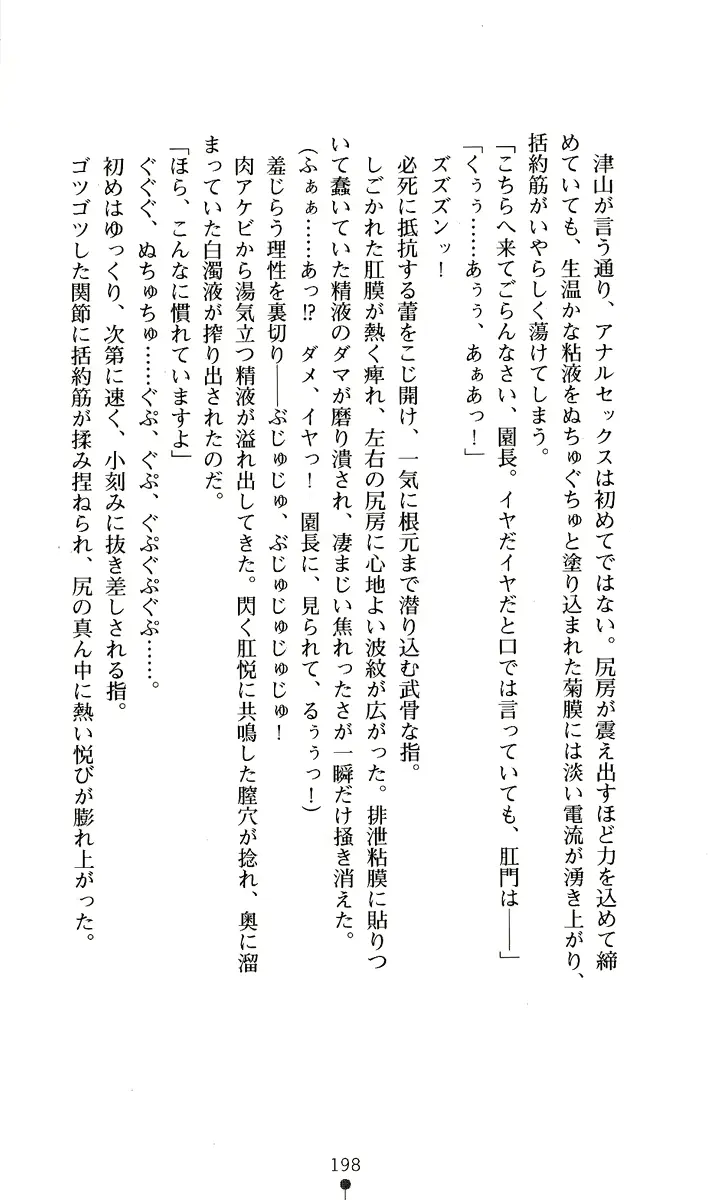 津山が言う通り、アナルセックスは初めてではない。尻房が震え出すほど力を込めて締
めていても、生温かな粘液をぬちゅぐちゅと塗り込まれた菊膜には淡い電流が湧き上がり、
括約筋がいやらしく蕩けてしまう。
「こちらへ来てごらんなさい、園長。イヤだイヤだと口では言っていても、肛門は――」
「くぅぅ……あぅぅ、あぁあっ！」
ズズズンッ！
必死に抵抗する蕾をこじ開け、一気に根元まで潜り込む武骨な指。
しごかれた肛膜が熱く痺れ、左右の尻房に心地よい波紋が広がった。排泄粘膜に貼りつ
いて蠢いていた精液のダマが磨り潰され、凄まじい焦れったさが一瞬だけ掻き消えた。
（ふぁぁ……あっ⁉　ダメ、イヤっ！　園長に、見られて、るぅぅっ！）
羞じらう理性を裏切り――ぶじゅじゅ、ぶじゅじゅじゅじゅ！
肉アケビから湯気立つ精液が溢れ出してきた。閃く肛悦に共鳴した膣穴が捻れ、奥に溜
まっていた白濁液が搾り出されたのだ。
「ほら、こんなに慣れていますよ」
ぐぐぐ、ぬちゅちゅ……ぐぷ、ぐぷ、ぐぷぐぷぐぷ……。
初めはゆっくり、次第に速く、小刻みに抜き差しされる指。
ゴツゴツした関節に括約筋が揉み捏ねられ、尻の真ん中に熱い悦びが膨れ上がった。
198